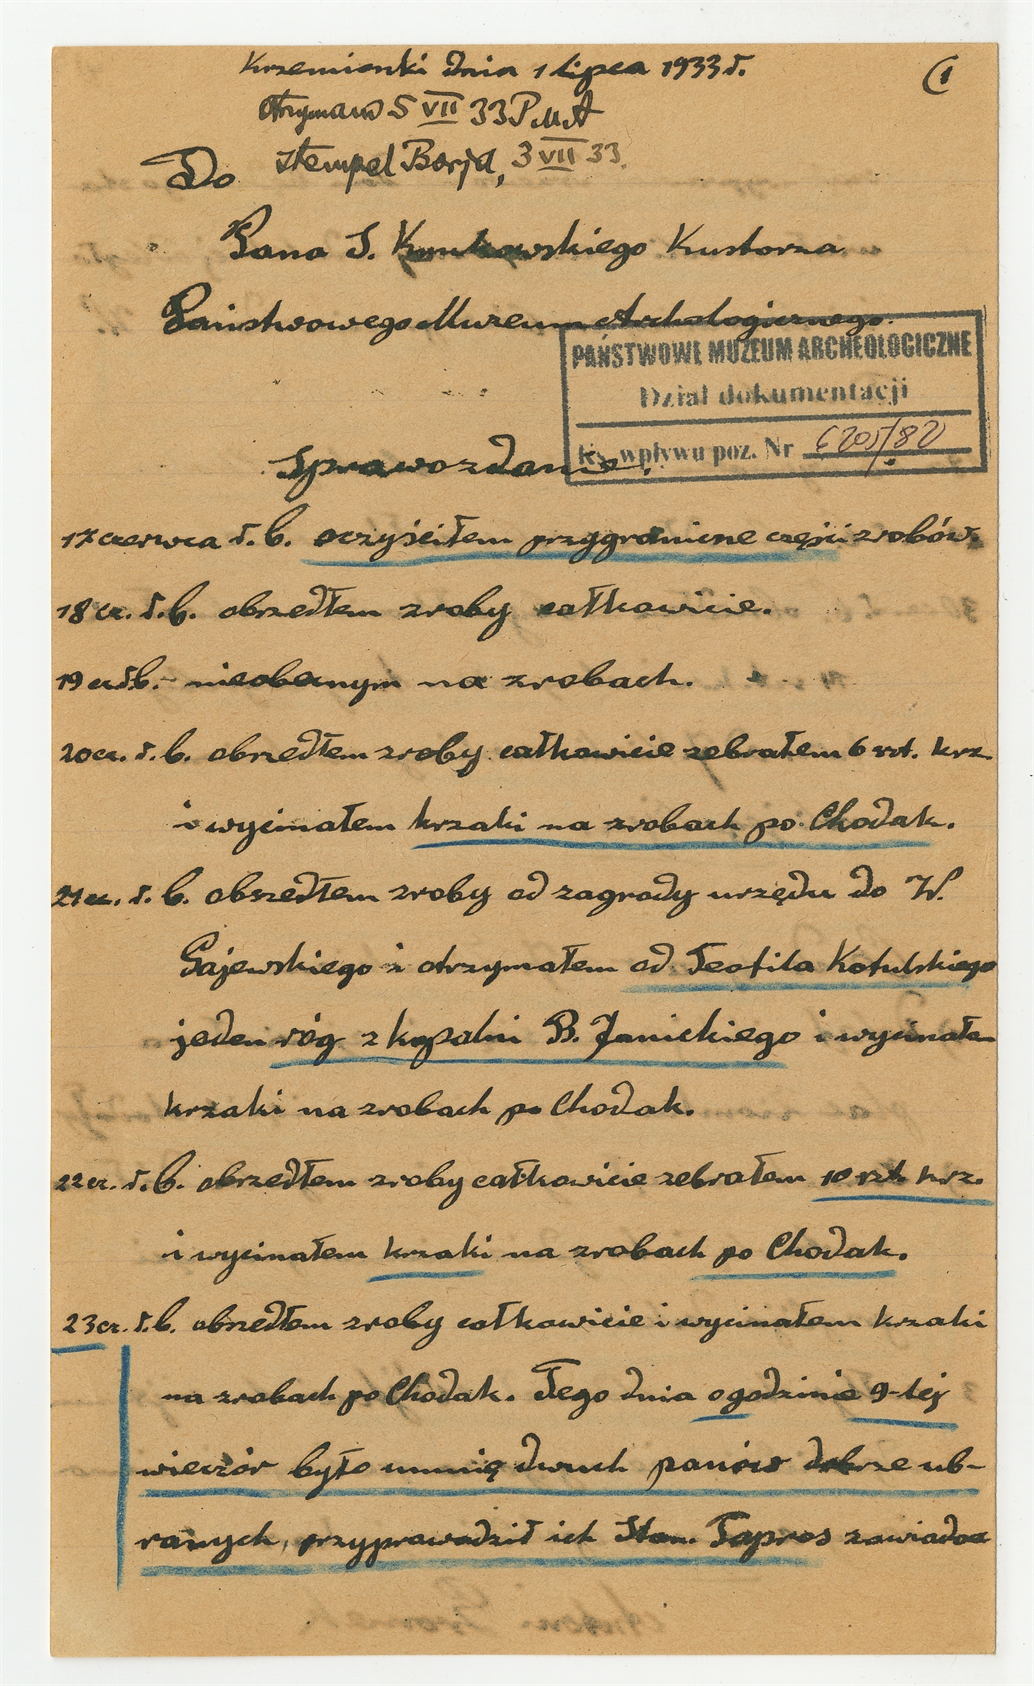 Krzemionki dnia 1 lipca 1933 r.
1
Otrzymano 5 VII 33 PMA
Do stempel Borja, 3 VII 33.
Pana S. Krukowskiego Kustosza
Państwowego Muzeum Archologicznego.
PAŃSTWOWE MUZEUM ARCHEOLOGICZNE
Dział dokumentacji
Ks. wpływu poz. Nr 6205/82
Sprawozdanie.
17 czerwca r. b. oczyściłem przygraniczne części zrobów.
18 cz. r. b. obszedłem zroby całkowicie.
19 cz r.b. – nieobecnym na zrobach.
20 cz. r. b. obszedłem zroby całkowicie zebrałem 6 szt. krz.
i wycinałem krzaki na zrobach po Chodak.
21 cz. r. b. obszedłem zroby od zagrody urzędu do W.
Gajewskiego i otrzymałem od Teofila Kotulskiego
jeden róg z kopalni B. Janickiego i wycinałem
krzaki na zrobach po Chodak.
22 cz. r. b. obszedłem zroby całkowicie zebrałem 10 szt. krz.
i wycinałem krzaki na zrobach po Chodak.
23 cz. r. b. obszedłem zroby całkowicie i wycinałem krzaki
na zrobach po Chodak. Tego dnia o godzinie 9-tej
wieczór było umnię dwuch panów dobrze ub-
ranych, przyprowadził ich Stan. Sapros zawiadoa